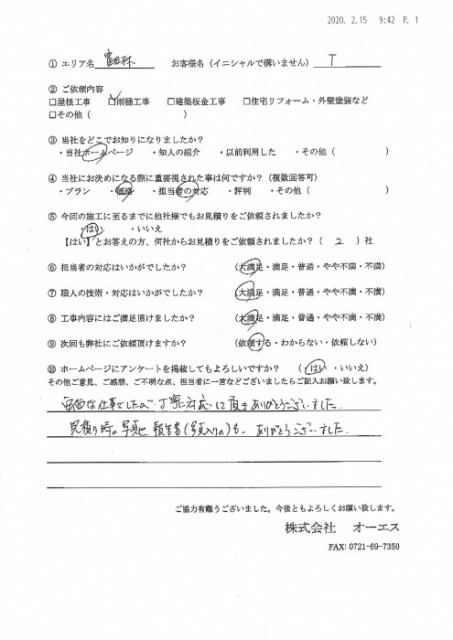 2020. 2.15 9:42 P. 1
① エリア名 富田林 お客様名（イニシャルで構いません） T
② ご依頼内容
□屋根工事 □雨樋工事 □建築板金工事 □住宅リフォーム・外壁塗装など
□その他（ ）
③ 当社をどこでお知りになりましたか？
・当社ホームページ ・知人の紹介 ・以前利用した ・その他（ ）
④ 当社にお決めになる際に重要視された事は何ですか？（複数回答可）
・プラン ・価格 ・担当者の対応 ・評判 ・その他（ ）
⑤ 今回の施工に至るまでに他社様でもお見積りをご依頼されましたか？
・はい ・いいえ
【はい】とお答えの方、何社からお見積りをご依頼されましたか？（ 2 ）社
⑥ 担当者の対応はいかがでしたか？ （大満足・満足・普通・やや不満・不満）
⑦ 職人の技術・対応はいかがでしたか？ （大満足・満足・普通・やや不満・不満）
⑧ 工事内容にはご満足頂けましたか？ （大満足・満足・普通・やや不満・不満）
⑨ 次回も弊社にご依頼頂けますか？ （依頼する・わからない・依頼しない）
⑩ ホームページにアンケートを掲載してもよろしいですか？ （ はい ・いいえ）
その他ご意見、ご感想、ご不明な点、担当者に一言などございましたらご記入お願い致します。
な仕事でしたので 丁寧に対応して頂きありがとうございました。
見積り時の写真や 報告書（写真入りの）も、ありがとうございました。
ご協力有難うございました。今後ともよろしくお願い致します。
株式会社 オーエス
FAX: 0721-69-7350